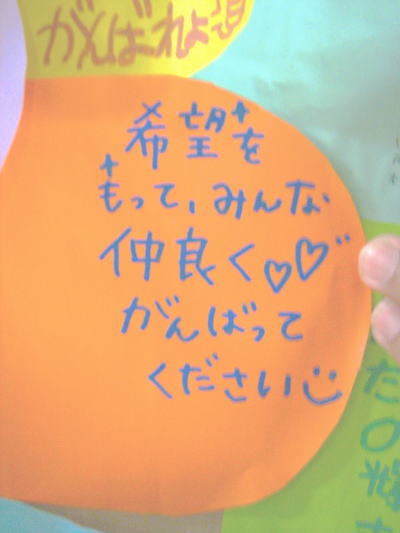 がんばれよ
希望を
もって、みんな
仲良く♡♡
がんばって
ください
たの